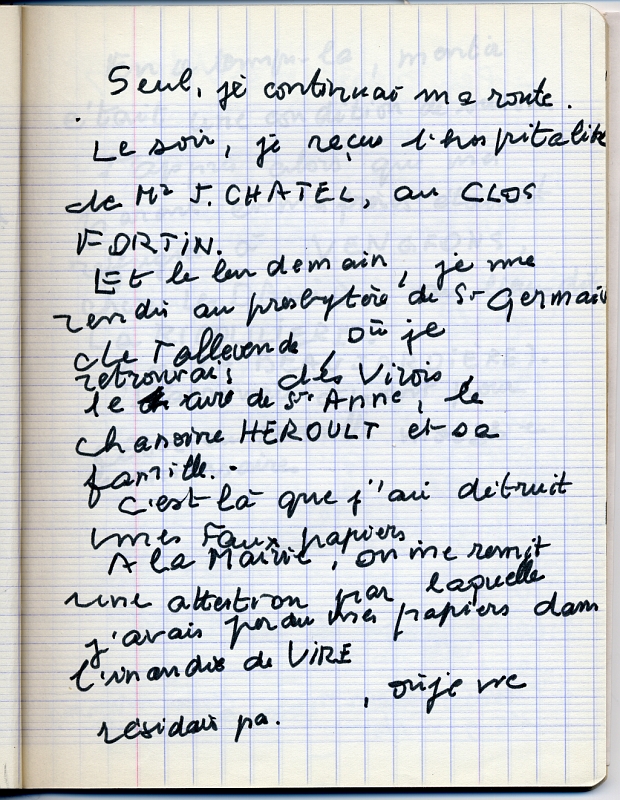 Seul, je continuai ma route.
Le soir, je reçus l'hospitalité
de Mr J. CHATEL, au CLOS
FORTIN.
Et le lendemain, je me
rendis au presbytère de St Germain
de Tallevende, où je
retrouvais des Virois,
le curé de Ste Anne, le
chanoine HEROULT et sa
famille.
C'est là que j'ai détruit
mes Faux papiers
A la Mairie, on me remit
une attestion par laquelle
j'avais perdu mes papiers dans
l'incendie de VIRE
, où je ne
résidais pas.